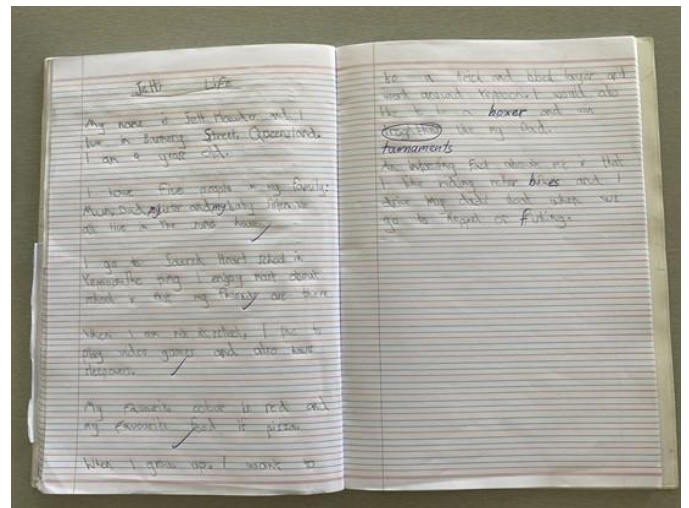 Jett's Life
My name is Jett and I
live in Street, Queensland.
I am 9 years old.
I have five people in my family:
Mum, Dad, sister and my baby
all live in the same house.
I go to Sacred Heart School in
Yeppoon. The thing I enjoy most about
school is that my friends are there
When I am not at school, I like to
play video games and also have
sleepovers.
My favourite colour is red and
my favourite food is pizza.
When I grow up, I want to
be a brick and block layer and
work around Yeppoon. I would also
like to be a boxer and win
like my Dad.
tournaments
An interesting fact about me is that
I like riding motor bikes and I
drive my dad's boat when we
go to or fishing.